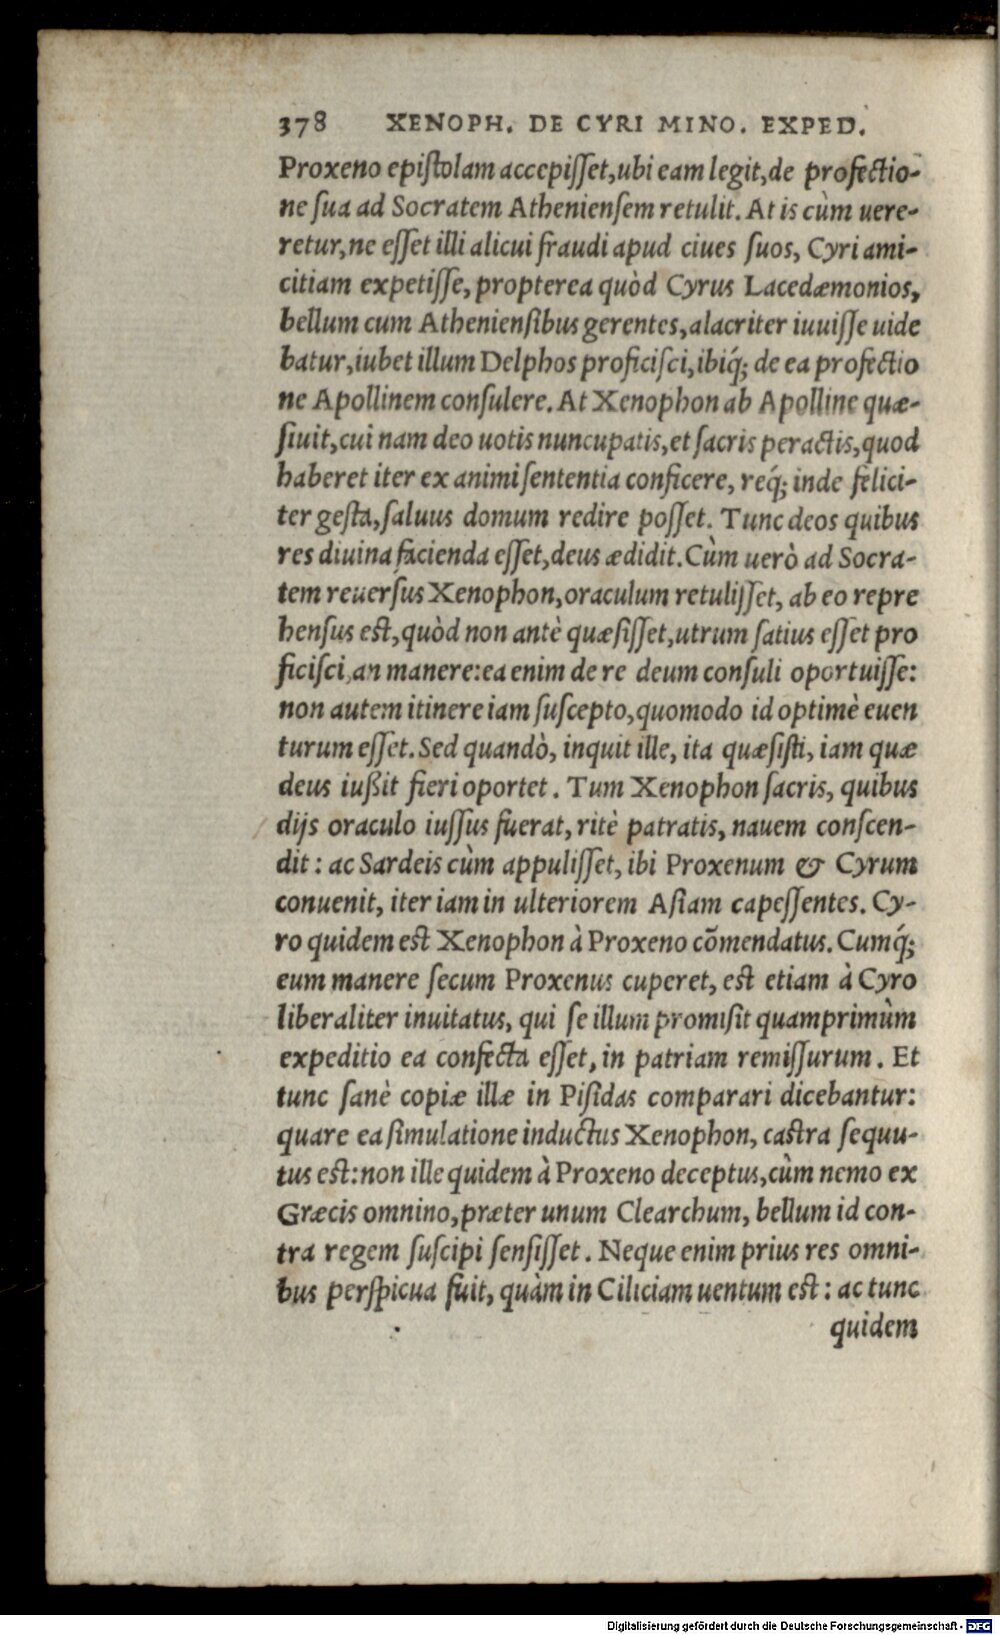 378 XENOPH. DE CYRI MINO. EXPED.
Proxeno epistolam accepisset, ubi eam legit, de profectio-
ne sua ad Socratem Atheniensem retulit. At is cùm uere-
retur, ne esset illi alicui fraudi apud ciues suos, Cyri ami-
citiam expetisse, propterea quòd Cyrus Lacedæmonios,
bellum cum Atheniensibus gerentes, alacriter iuuisse uide
batur, iubet illum Delphos proficisci, ibiq́; de ea profectio
ne Apollinem consulere. At Xenophon ab Apolline quæ-
siuit, cui nam deo uotis nuncupatis, et sacris peractis, quod
haberet iter ex animi sententia conficere, req́; inde felici-
ter gesta, saluus domum redire posset. Tunc deos quibus
res diuina facienda esset, deus ædidit. Cùm uerò ad Socra-
tem reuersus Xenophon, oraculum retulisset, ab eo repre
hensus est, quòd non antè quæsisset, utrum satius esset pro
ficisci, an manere: ea enim de re deum consuli oportuisse:
non autem itinere iam suscepto, quomodo id optimè euen
turum esset. Sed quandò, inquit ille, ita quæsisti, iam quæ
deus iußit fieri oportet. Tum Xenophon sacris, quibus
dijs oraculo iussus fuerat, ritè patratis, nauem conscen-
dit: ac Sardeis cùm appulisset, ibi Proxenum & Cyrum
conuenit, iter iam in ulteriorem Asiam capessentes. Cy-
ro quidem est Xenophon à Proxeno cōmendatus. Cumq́;
eum manere secum Proxenus cuperet, est etiam à Cyro
liberaliter inuitatus, qui se illum promisit quamprimùm
expeditio ea confecta esset, in patriam remissurum. Et
tunc sanè copiæ illæ in Pisidas comparari dicebantur:
quare ea simulatione inductus Xenophon, castra sequu-
tus est: non ille quidem à Proxeno deceptus, cùm nemo ex
Græcis omnino, præter unum Clearchum, bellum id con-
tra regem suscipi sensisset. Neque enim prius res omni-
bus perspicua fuit, quàm in Ciliciam uentum est: ac tunc
quidem
Digitalisierung gefördert durch die Deutsche Forschungsgemeinschaft - DFG